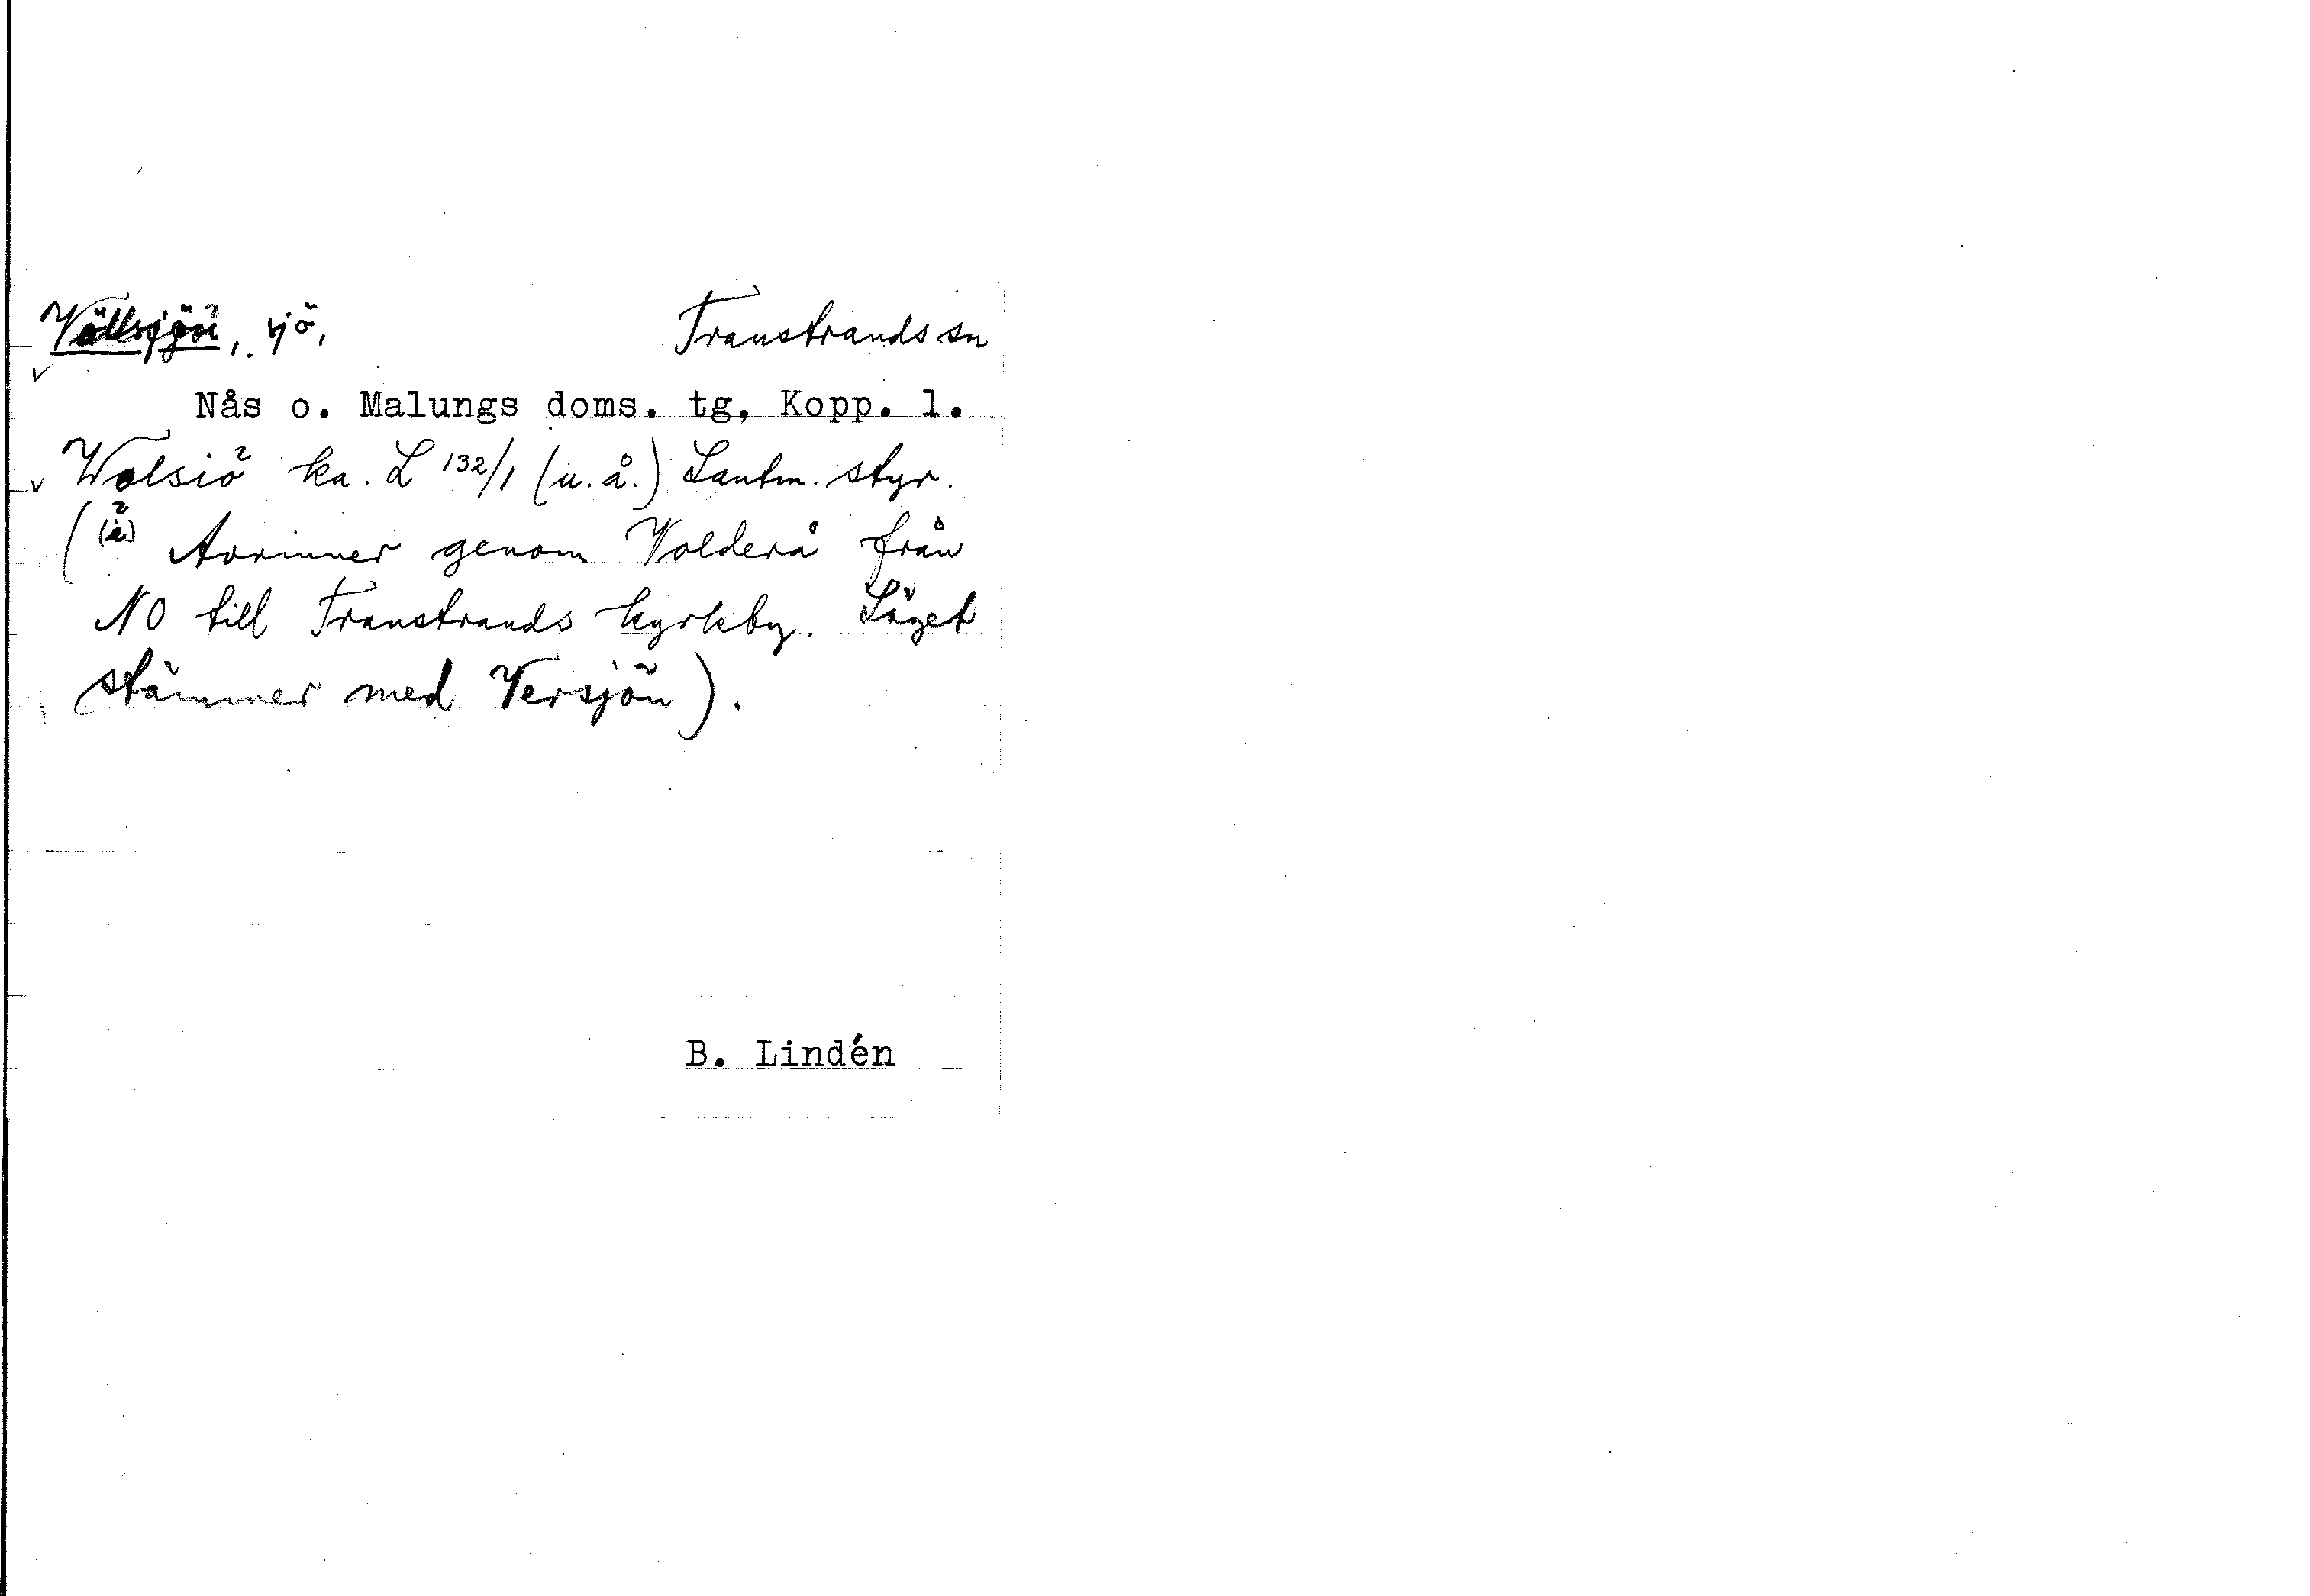 Vällsjön, sjö, Transtrands sn
Nås o. Malungs doms. tg, Kopp. l.
Wolsiö ka. L 132/1 (u.å.) Lantm. styr.
( Avrinner genom Volderå från
NO till Transtrands kyrkby. Läget
stämmer med Versjön).
B. Lindén